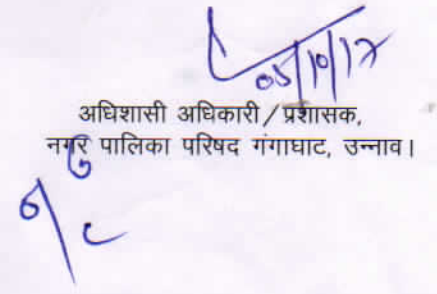 05/10/17
अधिशासी अधिकारी / प्रशासक,
नगर पालिका परिषद गंगाघाट, उन्नाव।